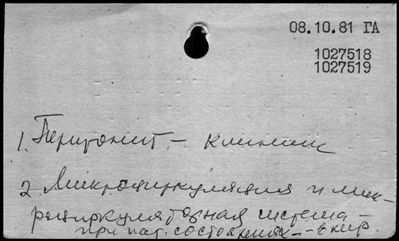 08.10.81 ГА
1027518
1027519
1. Перитонит — клиник
2. Микроциркуляция и мик-
роциркуляторная система —
при пат. состояниях — в хир.